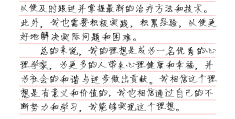 以便及时跟进并掌握最新的治疗方法和技术。
此外，我也需要积极实践，积累经验，以便更
好地解决实际问题和困难。
总的来说，我的理想是成为一名优秀的心
理学家，为更多的人带来心理健康和幸福，并
为社会的和谐与进步做出贡献。我相信这个理
想是有意义和价值的，我也相信通过自己的不
断努力和学习，我能够实现这个理想。